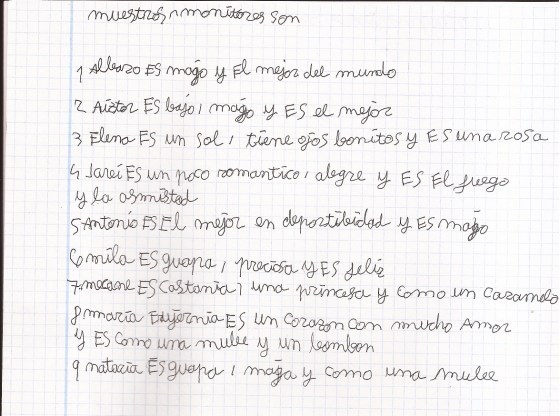 muestros monitores son
1 Albazo ES mago y El mejor del mundo
2 Aictor ES bajo, mago y ES el mejor
3 Elena ES un sol, tiene ojos bonitos y ES una rosa
4 Jarei ES un poco romantico, alegre y ES El fuego
y la asmistad
5 Antonio ES El mejor en deportibidad y ES mago
6 mila ES guapa, preciosa y ES feliz
7 mocane ES Castania, una princesa y como un caramelo
8 maria Eujornia ES un corazon con mucho Amor
y ES como una mulee y un bombon
9 nataria ES guapa, maga y como una mulee